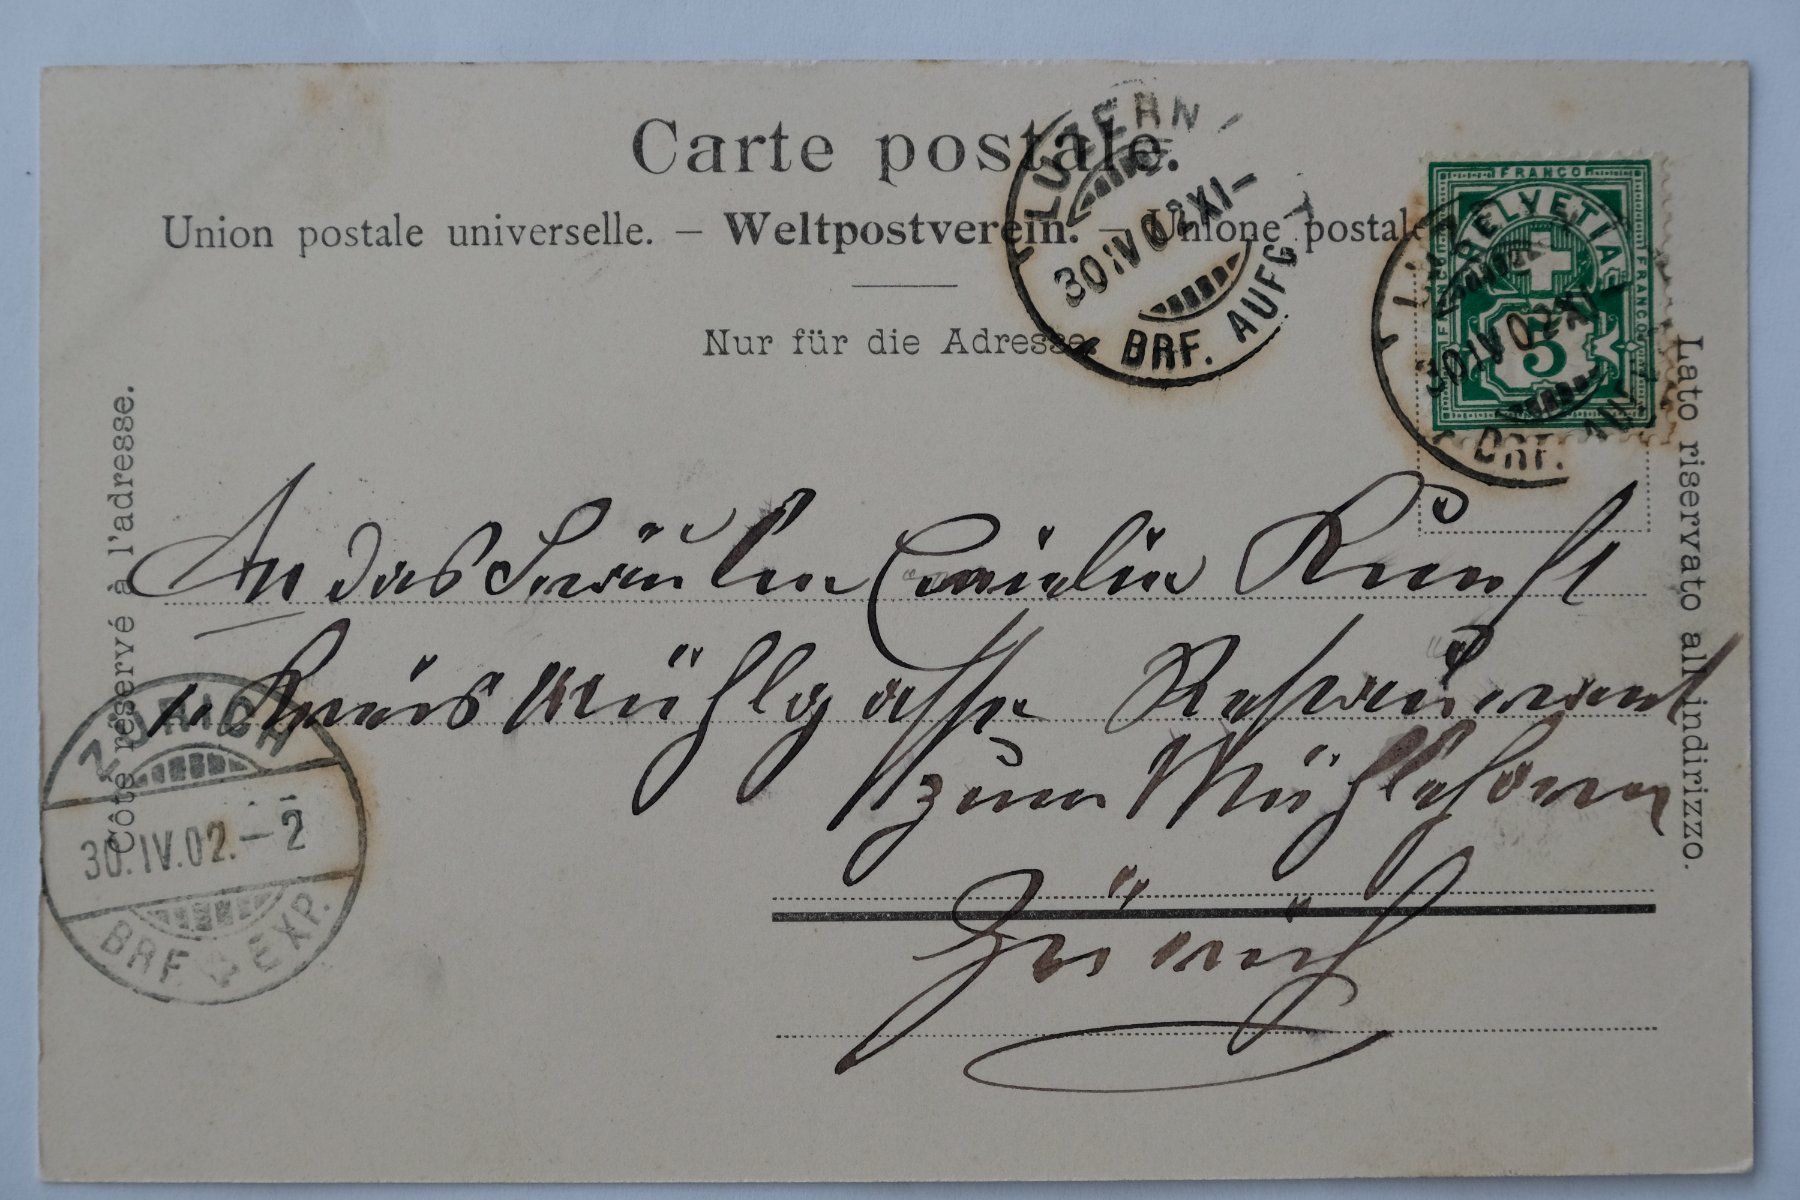 Carte postale.
Union postale universelle. — Weltpostverein. — Unione postale
Nur für die Adresse.
Côté réservé à l'adresse.
Lato riservato all indirizzo.
LUZERN
30 IV 02 XI—
BRF. AUFG
FRANCO
HELVETIA
FRANCO
FRANCO
5
30 IV 02 XI
BRF. AU
An das Fräulein Kunst
Mühlgasse Restaurant
zum
Zürich
ZÜRICH
30.IV.02.—2
BRF EXP.